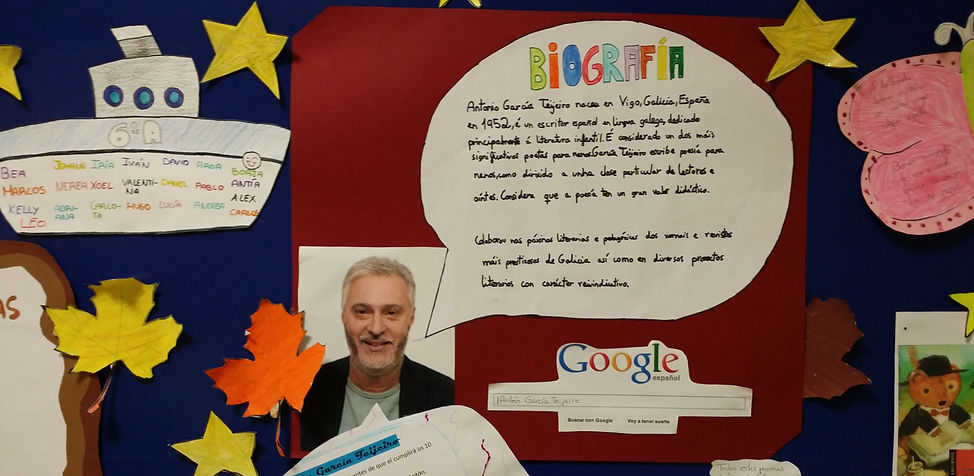 BIOGRAFÍA
Antonio García Teijeiro naceu en Vigo, Galicia, España
en 1952, é un escritor español en lingua galega, dedicado
principalmente á literatura infantil. É considerado un dos máis
significativos poetas para nenos. García Teijeiro escribe poesía para
nenos, como dirixido a unha clase particular de lectores e
oíntes. Considera que a poesía ten un gran valor didáctico.
Colaborou nas páxinas literarias e pedagóxicas dos xornais e revistas
máis prestixosas de Galicia así como en diversos proxectos
literarios con carácter reivindicativo.
6ºA
BEA
MARCOS
KELLY
LEO
JOHANN
NEREA
ADRI-
ANA
IRIA
XOEL
CARLO-
TA
IVÁN
VALENTI-
NA
HUGO
DAVID
DANIEL
LUCÍA
AROA
PABLO
ANDREA
BORJA
ANTÍA
ALEX
CARLOS
AS
Google
español
Antón García Teijeiro
Buscar con Google Voy a tener suerte
García Teijeiro
antes de que el cumplirá os 10
Todos estes poemas